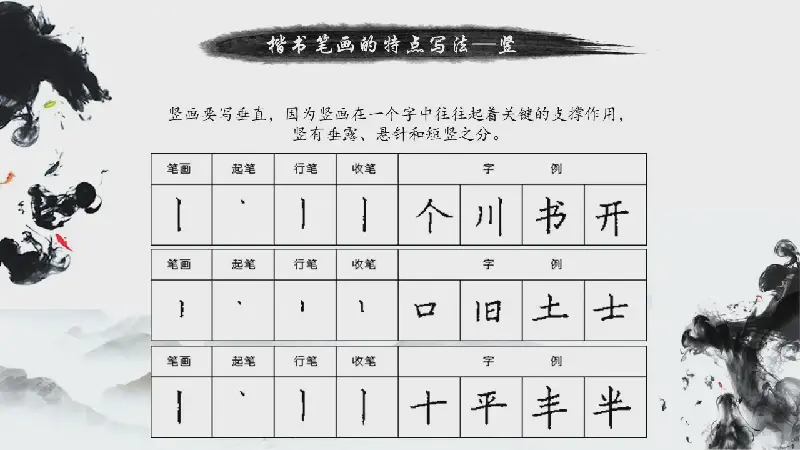 楷书笔画的特点写法—竖
竖画要写垂直，因为竖画在一个字中往往起着关键的支撑作用，
竖有垂露、悬针和短竖之分。
笔画 起笔 行笔 收笔 字 例
个 川 书 开
笔画 起笔 行笔 收笔 字 例
口 旧 土 士
笔画 起笔 行笔 收笔 字 例
十 平 丰 半